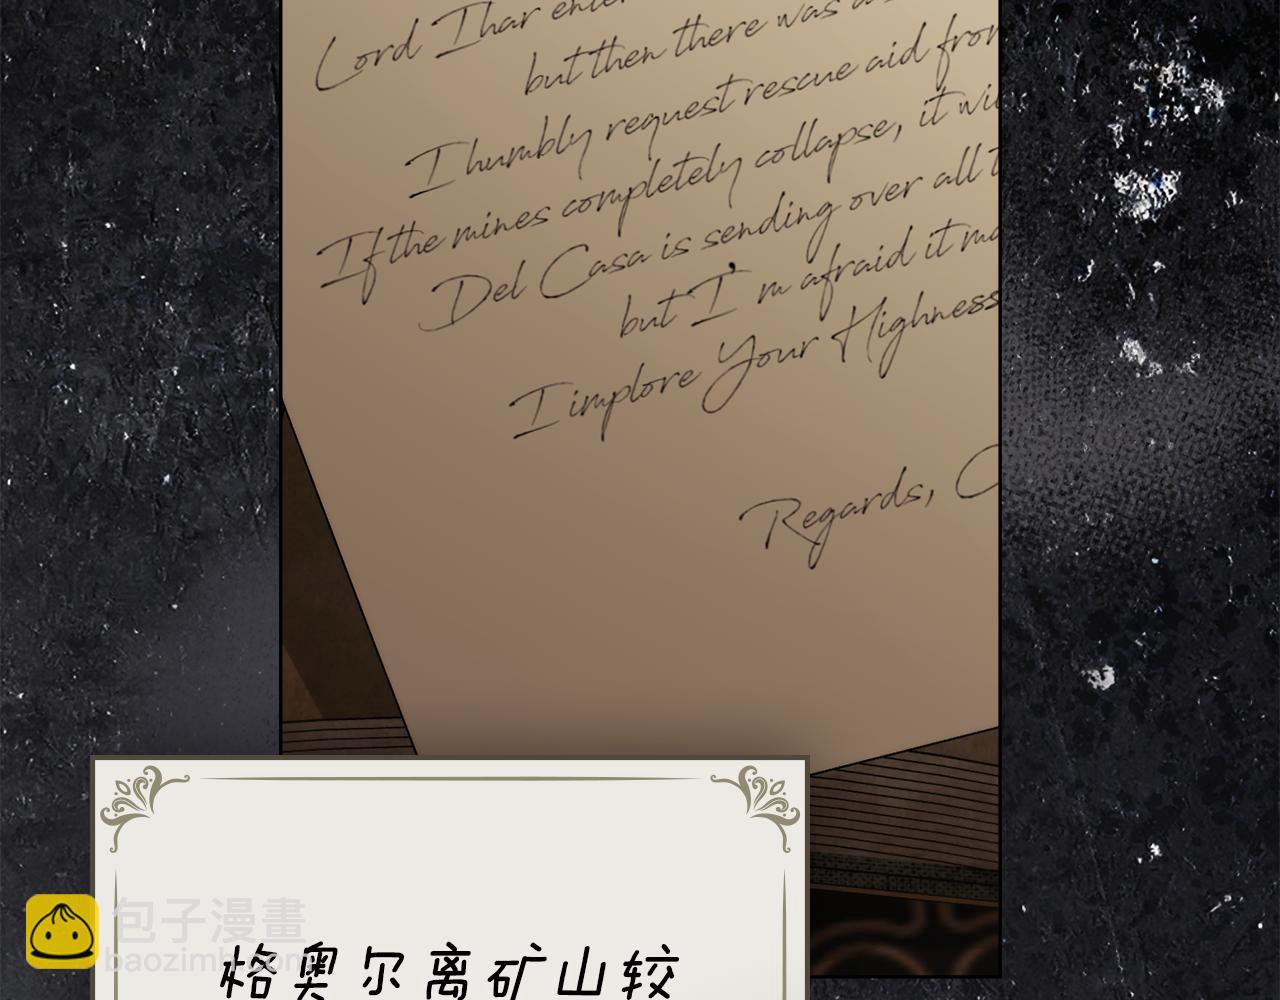 Lord Ihar
but then there was a
I humbly request rescue aid from
If the mines completely collapse, it wi
Del Casa is sending over all t
but I'm afraid it ma
I implore Your Highness
Regards, C
格奥尔离矿山较
包子漫畫
baozimh.com